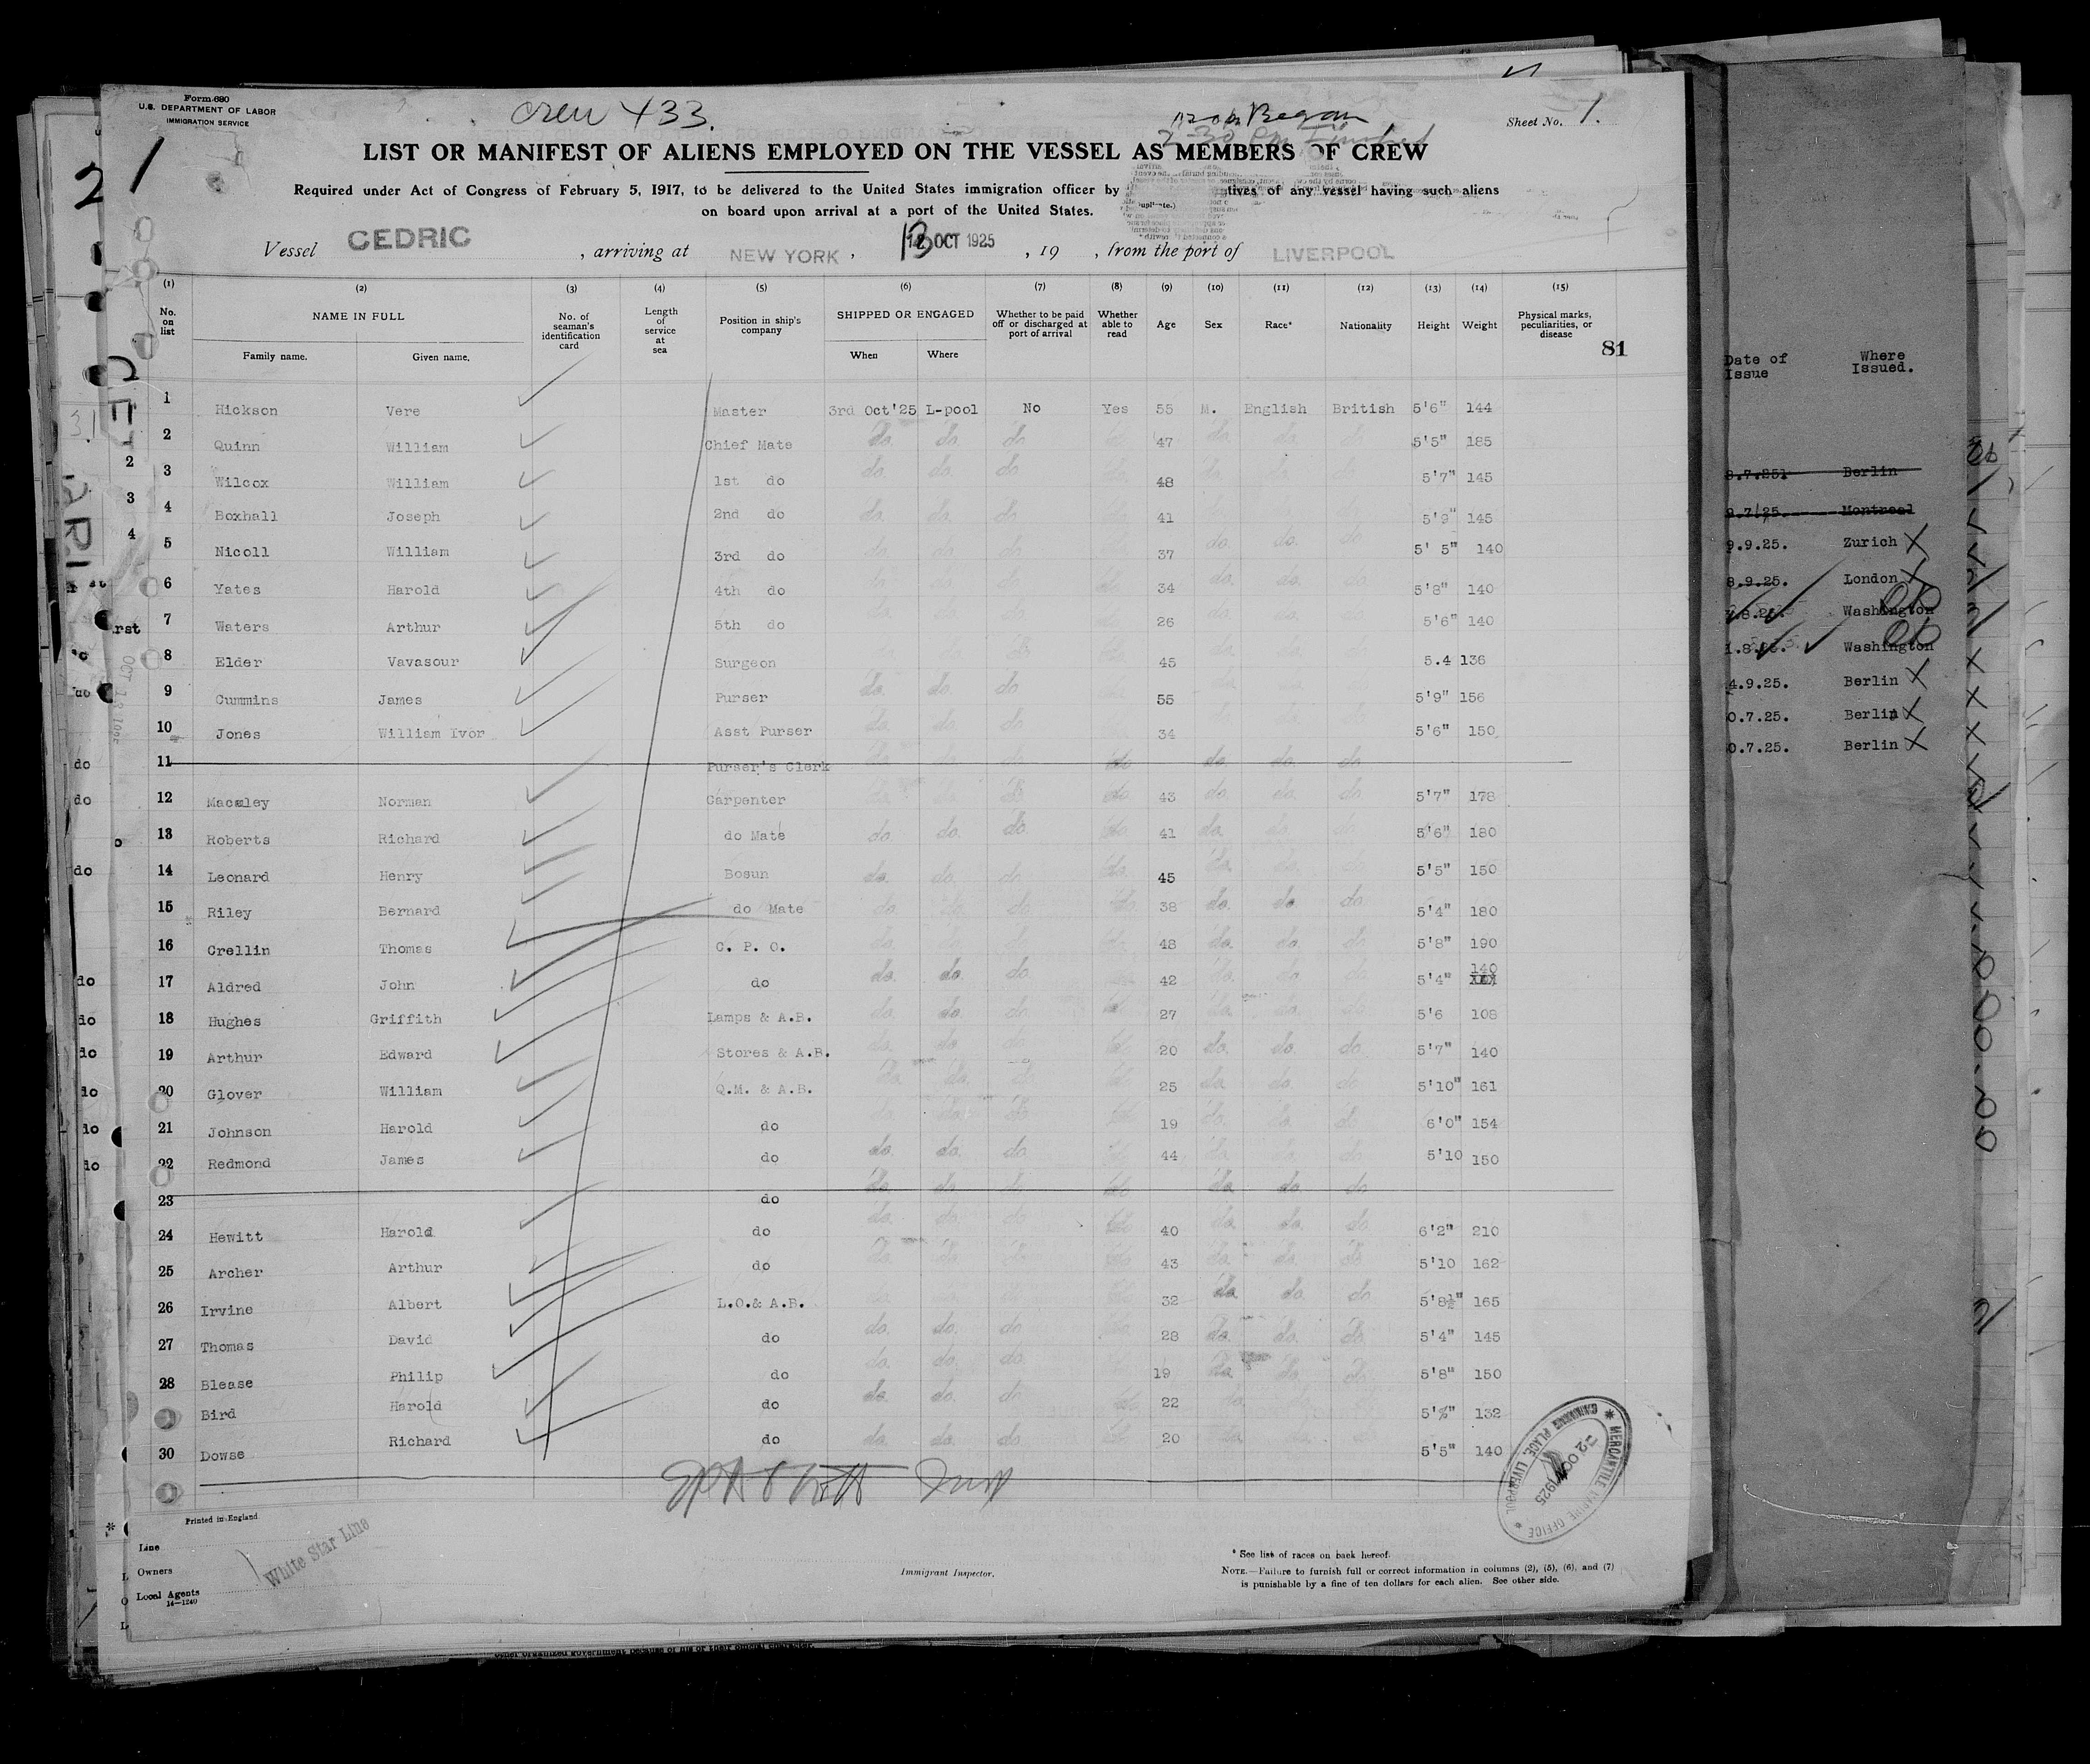 Form 680
U.S. DEPARTMENT OF LABOR
IMMIGRATION SERVICE
Crew 433.
Began
2-30 pm Finished
Sheet No. 1.
1
LIST OR MANIFEST OF ALIENS EMPLOYED ON THE VESSEL AS MEMBERS OF CREW
Required under Act of Congress of February 5, 1917, to be delivered to the United States immigration officer by tives of any vessel having such aliens
on board upon arrival at a port of the United States.
Vessel CEDRIC , arriving at NEW YORK , 13 OCT 1925 , 19 , from the port of LIVERPOOL
(1) (2) (3) (4) (5) (6) (7) (8) (9) (10) (11) (12) (13) (14) (15)
No. on list NAME IN FULL No. of seaman's identification card Length of service at sea Position in ship's company SHIPPED OR ENGAGED Whether to be paid off or discharged at port of arrival Whether able to read Age Sex Race* Nationality Height Weight Physical marks, peculiarities, or disease
Family name. Given name. When Where
81
1 Hickson Vere Master 3rd Oct'25 L-pool No Yes 55 M. English British 5'6" 144
2 Quinn William Chief Mate do. do. do do. 47 do. do. do 5'5" 185
3 Wilcox William 1st do do. do. do do. 48 do. do. do 5'7" 145
4 Boxhall Joseph 2nd do do. do. do do. 41 do. do. do 5'9" 145
5 Nicoll William 3rd do do. do. do do. 37 do. do. do 5' 5" 140
6 Yates Harold 4th do do. do. do do. 34 do. do. do 5'8" 140
7 Waters Arthur 5th do do. do. do do. 26 do. do. do 5'6" 140
8 Elder Vavasour Surgeon do. do. do do. 45 do. do. do 5.4 136
9 Cummins James Purser do. do. do do. 55 do. do. do 5'9" 156
10 Jones William Ivor Asst Purser do. do. do do. 34 do. do. do 5'6" 150
11 Purser's Clerk do. do. do do. do. do. do
12 Norman Carpenter do. do. do do. 43 do. do. do 5'7" 178
13 Roberts Richard do Mate do. do. do do. 41 do. do. do 5'6" 180
14 Leonard Henry Bosun do. do. do do. 45 do. do. do 5'5" 150
15 Riley Bernard do Mate do. do. do do. 38 do. do. do 5'4" 180
16 Crellin Thomas C. P. O. do. do. do do. 48 do. do. do 5'8" 190
17 Aldred John do do. do. do do. 42 do. do. do 5'4" 140
18 Hughes Griffith Lamps & A.B. do. do. do do. 27 do. do. do 5'6 108
19 Arthur Edward Stores & A.B. do. do. do do. 20 do. do. do 5'7" 140
20 Glover William Q.M. & A.B. do. do. do do. 25 do. do. do 5'10" 161
21 Johnson Harold do do. do. do do. 19 do. do. do 6'0" 154
22 Redmond James do do. do. do do. 44 do. do. do 5'10 150
23 do do. do. do do. do. do. do
24 Hewitt Harold do do. do. do do. 40 do. do. do 6'2" 210
25 Archer Arthur do do. do. do do. 43 do. do. do 5'10 162
26 Irvine Albert L.O.& A.B. do. do. do do. 32 do. do. do 5'8½" 165
27 Thomas David do do. do. do do. 28 do. do. do 5'4" 145
28 Blease Philip do do. do. do. do. 19 do. do. do 5'8" 150
Bird Harold do do. do. do do. 22 do. do. do 132
30 Dowse Richard do do. do. do do. 20 do. do. do 5'5" 140
Printed in England
Line
Owners
Local Agents
14—1240
White Star Line
Immigrant Inspector.
* See list of races on back hereof.
NOTE.—Failure to furnish full or correct information in columns (2), (5), (6), and (7)
is punishable by a fine of ten dollars for each alien. See other side.
MERCANTILE MARINE OFFICE
CANNING PLACE, LIVERPOOL
2 OCT 1925
Date of Issue Where Issued.
Berlin
9.7/25. Montreal
9.9.25. Zurich
8.9.25. London
Washington
Washington
4.9.25. Berlin
0.7.25. Berlin
0.7.25. Berlin